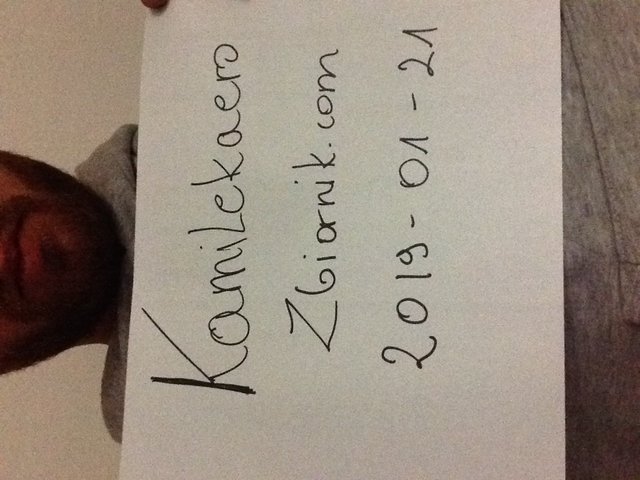 KamiLekaero
Zbiornik.com
2019-01-21